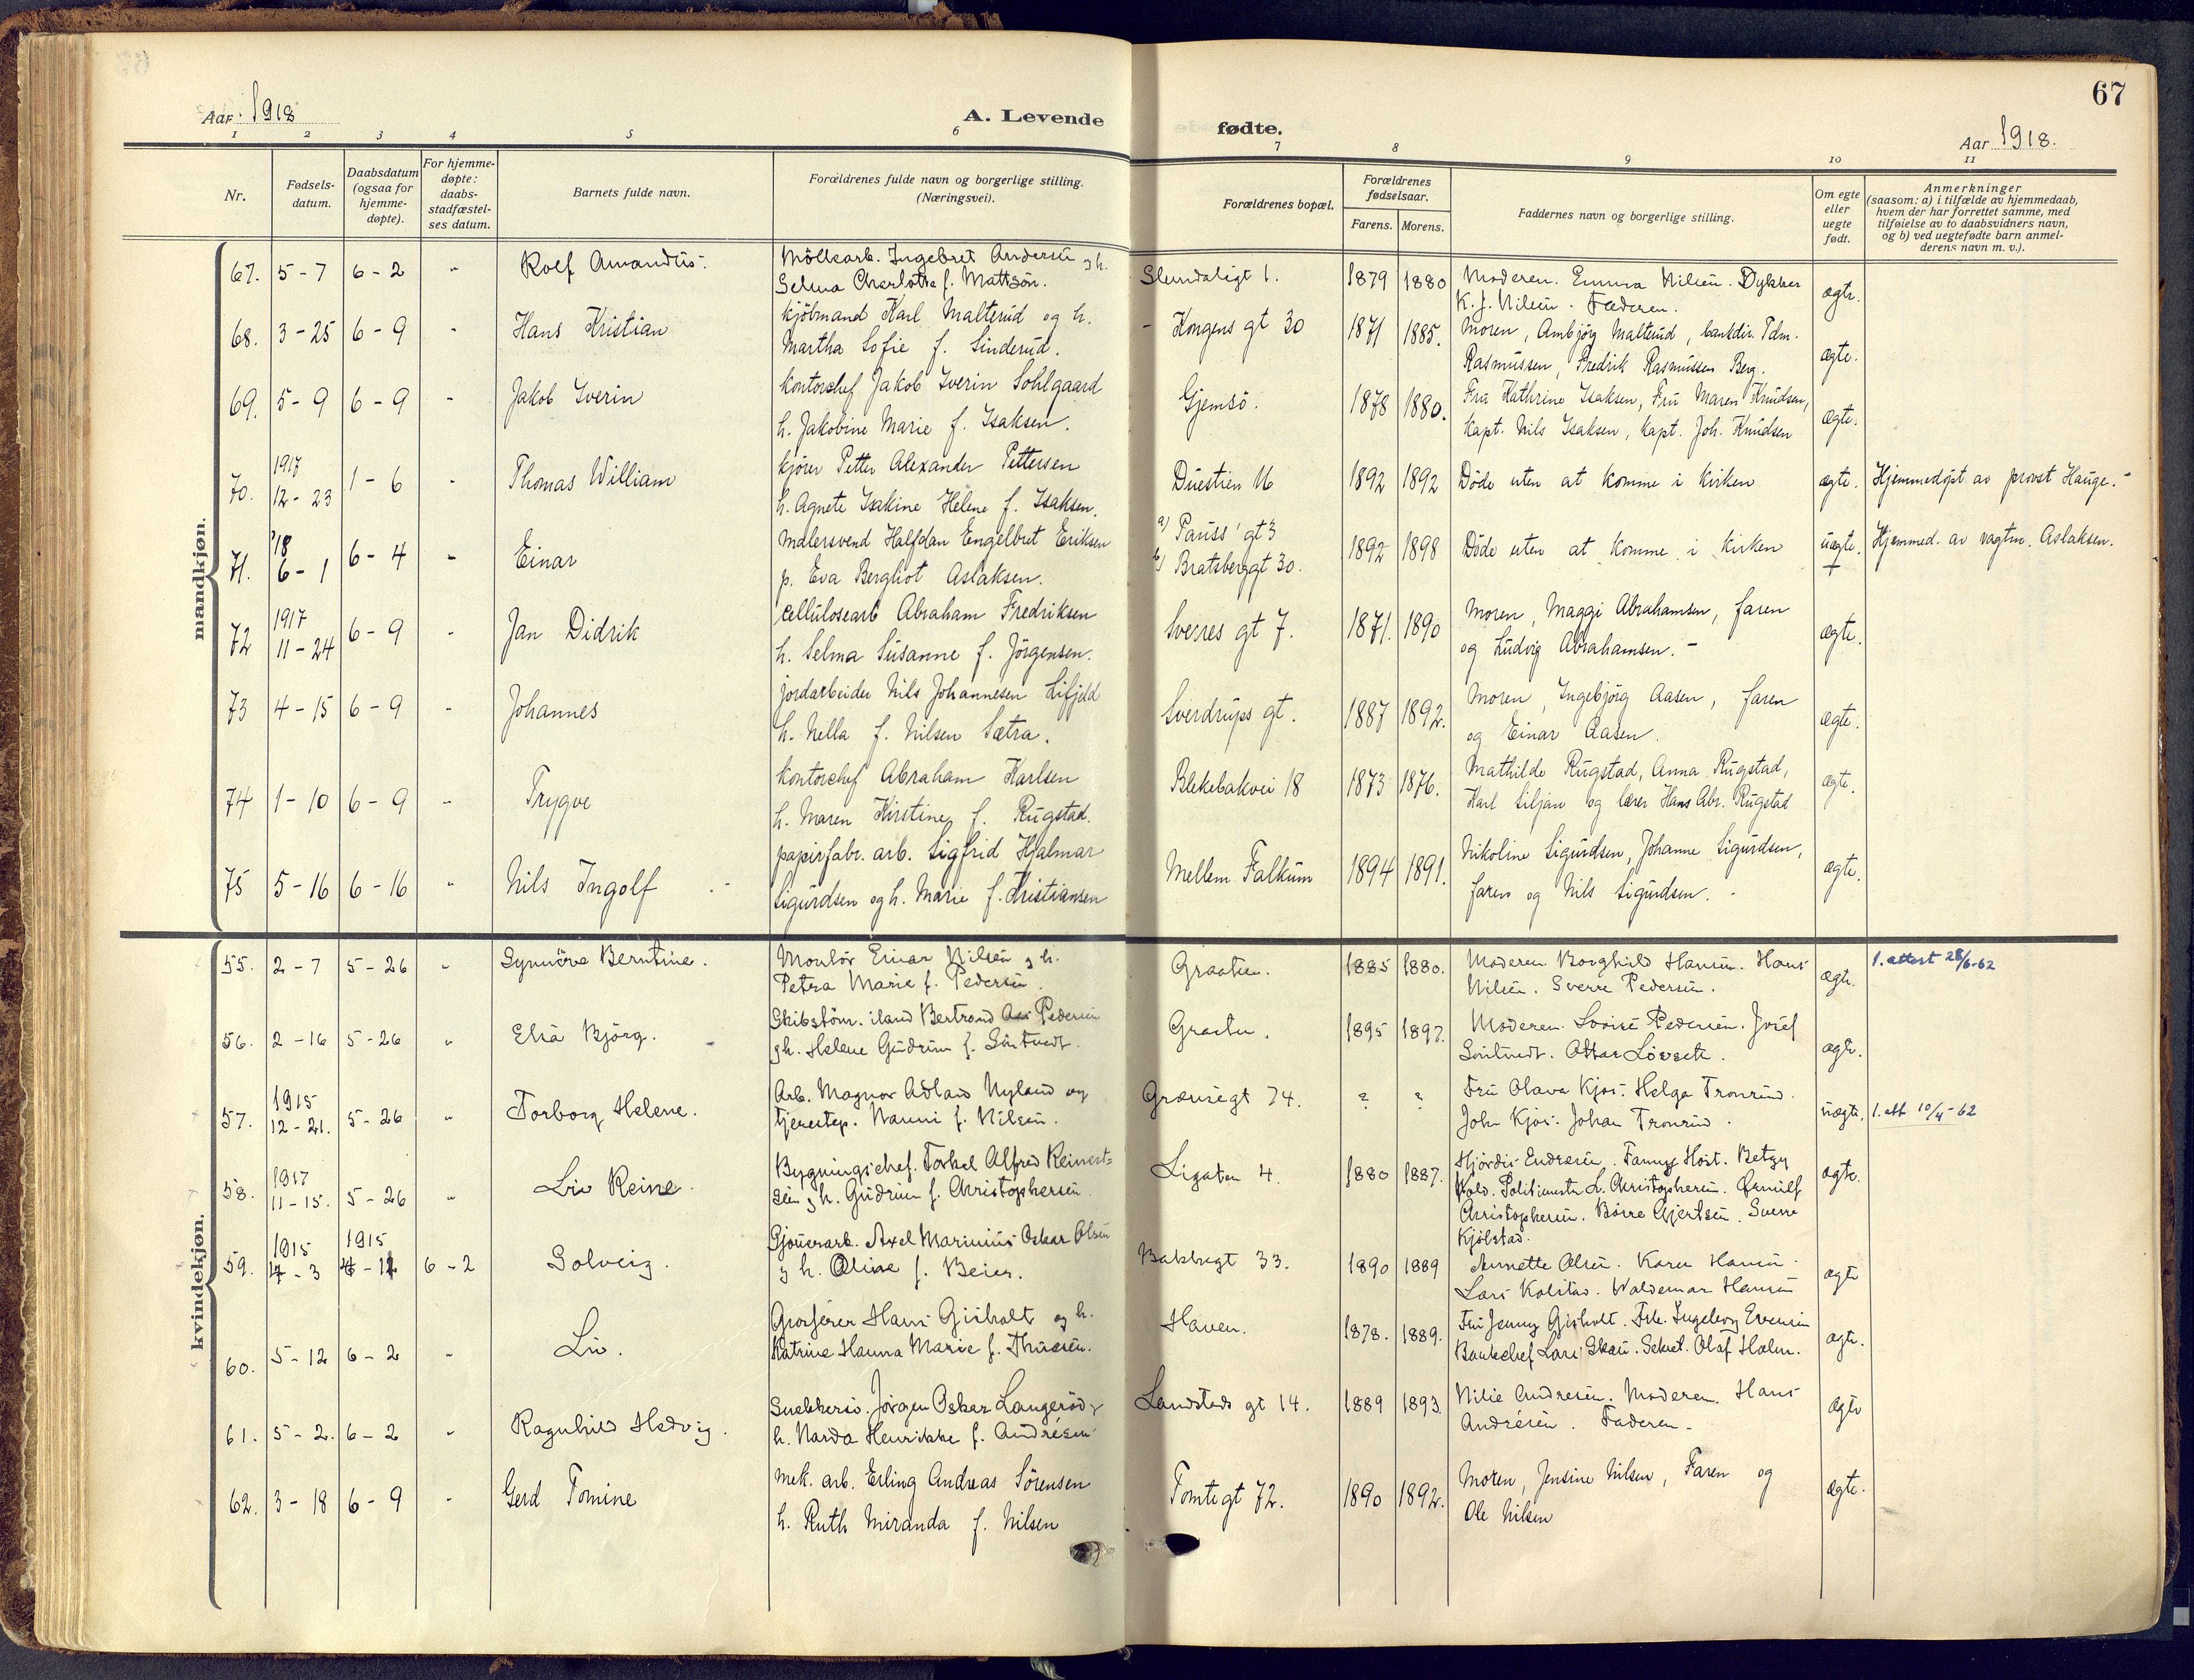 67
Aar 1918
A. Levende fødte.
Aar 1918.
1 2 3 4 5 6 7 8 9 10 11
Nr.
Fødsels-
datum.
Daabsdatum
(ogsaa for
hjemme-
døpte).
For hjemme-
døpte:
daabs-
stadfæstel-
ses datum.
Barnets fulde navn.
Forældrenes fulde navn og borgerlige stilling.
(Næringsvei).
Forældrenes bopæl.
Forældrenes
fødselsaar.
Farens. Morens.
Faddernes navn og borgerlige stilling.
Om egte
eller
uegte
født.
Anmerkninger
(saasom: a) i tilfælde av hjemmedaab,
hvem der har forrettet samme, med
tilføielse av to daabsvidners navn,
og b) ved uegtefødte barn anmel-
derens navn m. v.).
mandkjøn.
67. 5-7 6-2 " Rolf Amandus.
Möllearb. Ingebret Andersen og h.
Selma Charlotte f. Mattson.
1. 1879 1880
Moderen. Emma Nilsen. Dykker
K. J. Nilsen. Faderen.
ægte.
68. 3-25 6-9 " Hans Kristian
kjöbmand Karl Malterud og h.
Martha Sofie f. Sinderud.
Kongens gt 30 1871 1885.
Moren, Ambjörg Malterud, bankdir. Tdm.
Rasmussen, Fredrik Rasmussen Berg.
ægte.
69. 5-9 6-9 " Jakob Iverin
kontorchef Jakob Iverin Sohlgaard
h. Jakobine Marie f. Isaksen.
Gjemsö. 1878 1880.
Fru Kathrine Isaksen, Fru Maren Knudsen,
kapt. Nils Isaksen, kapt. Joh. Knudsen
ægte.
70. 1917 12-23 1-6 " Thomas William
kjörer Petter Alexander Pettersen
h. Agnete Isakine Helene f. Isaksen.
Duestien 16 1892 1892
Döde uten at komme i kirken
ægte. Hjemmedöpt av provst Hauge.
71. '18 6-1 6-4 " Einar
malersvend Halfdan Engelbret Eriksen
p. Eva Bergliot Aslaksen.
a) Pauss' gt 3
b) Bratsberggt 30.
1892 1898
Döde uten at komme i kirken
uægte. Hjemmed. av vagtm. Aslaksen.
72 1917 11-24 6-9 " Jan Didrik
cellulosearb Abraham Fredriksen
h. Selma Susanne f. Jörgensen.
Sverres gt 7. 1871. 1890
Moren, Maggi Abrahamsen, faren
og Ludvig Abrahamsen.
ægte.
73 4-15 6-9 " Johannes
jordarbeider Nils Johannesen Lifjeld
h. Nella f. Nilsen Sætra.
Sverdrups gt. 1887 1892.
Moren, Ingebjörg Aasen, faren
og Einar Aasen.
ægte.
74 1-10 6-9 " Trygve
kontorchef Abraham Karlsen
h. Maren Kirstine f. Rugstad.
Blekebakvei 18 1873 1876.
Mathilde Rugstad, Anna Rugstad,
Karl Siljan og lærer Hans Abr. Rugstad
ægte.
75 5-16 6-16 " Nils Ingolf
papirfabr. arb. Sigfrid Hjalmar
Sigurdsen og h. Marie f. Kristiansen
Mellem Falkum 1894 1891.
Nikoline Sigurdsen, Johanne Sigurdsen,
faren og Nils Sigurdsen.
ægte.
kvindekjøn.
55. 2-7 5-26 " Synnöve Berntine.
Montör Einar Nilsen og h.
Petra Marie f. Pedersen.
Graaten. 1885 1880.
Moderen. Borghild Hansen. Hans
Nilsen. Sverre Pedersen.
ægte. 1. attest 28/6-62
56. 2-16 5-26 " Elsa Björg.
Bertrand Pedersen
og h. Helene Gudrun f. Söntvedt.
Graaten. 1895 1897.
Moderen. Lovise Pedersen. Josef
Söntvedt. Ottar Lövseth.
ægte.
57. 1915 12-21. 5-26 " Torborg Helene.
Arb. Magnor Adland Nyland og
tjenestep. Nanni f. Nilsen.
Grænsegt 74. ? ?
Fru Olava Kjos. Helga Tronrud.
John Kjos. Johan Tronrud.
uægte. 1. att 10/4-62
58. 1917 11-15. 5-26 " Liv Reine.
Bygningschef. Torkel Alfred Reinert-
sen og h. Gudrun f. Christophersen.
Ligaten 4. 1880 1887.
Hjördis Endresen. Fanny Höst. Betzy
Wold. Politimester L. Christophersen. Ørnulf
Christophersen. Börre Gjertsen. Sverre
Kjölstad.
ægte.
59. 1915 4-3 1915 4-12 6-2 Solveig.
Axel Marinius Oskar Olsen
og h. Oline f. Beier.
Bakkegt 33. 1890 1889
Annette Olsen. Karen Hansen.
Lars Kolstad. Waldemar Hansen
ægte
60. 5-12 6-2 " Liv.
Grosserer Hans Gisholt og h.
Katrine Hanna Marie f. Thuesen.
Haven. 1878. 1889.
Fru Jenny Gisholt. Frk. Ingeborg Evensen
Bankchef Lars Skau. Sekret. Olaf Holm.
ægte.
61. 5-2. 6-2 " Ragnhild Hedvig.
Snekkersv. Jörgen Oskar Langeröd og
h. Narda Henrikke f. Andresen
Landstads gt 14. 1889 1893.
Nilie Andresen. Moderen. Hans
Andresen. Faderen.
ægte
62. 3-18 6-9 " Gerd Tomine
mek. arb. Erling Andreas Sörensen
h. Ruth Miranda f. Nilsen
Tomtegt 72. 1890 1892.
Moren, Jensine Nilsen, Faren og
Ole Nilsen
ægte.